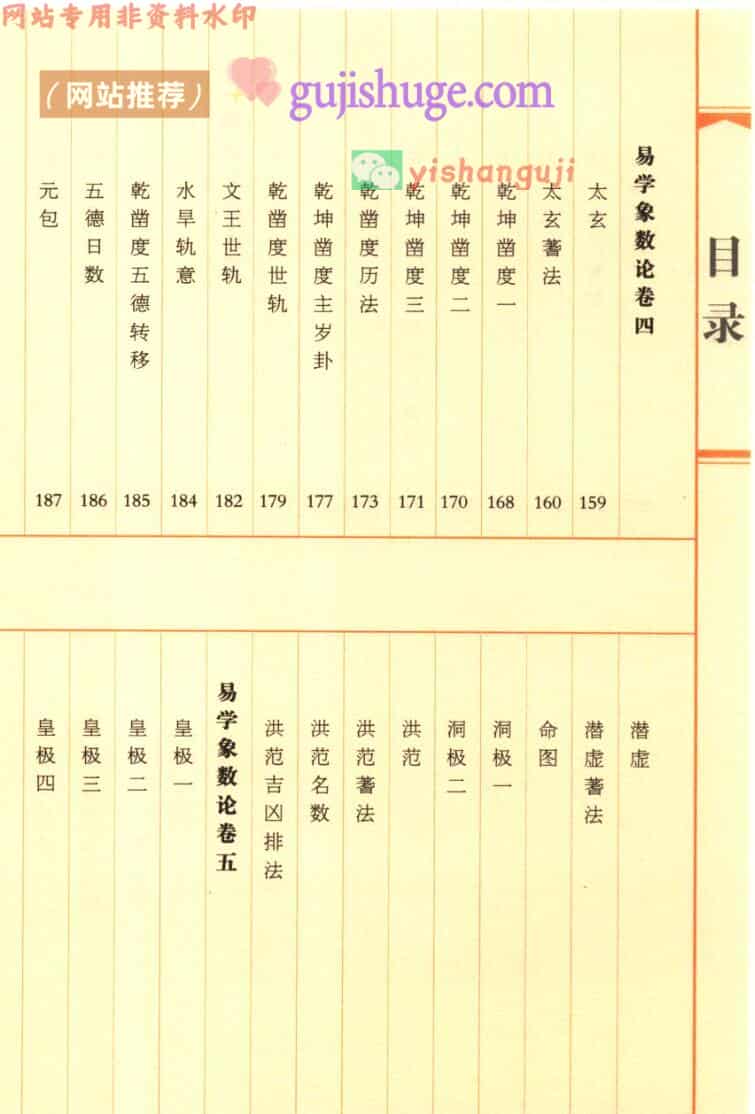 网站专用非资料水印
(网站推荐)
gujishuge.com
yishanguji
目录
易学象数论卷四
太玄 159
太玄蓍法 160
乾坤凿度一 168
乾坤凿度二 170
乾坤凿度三 171
乾凿度历法 173
乾坤凿度主岁卦 177
乾凿度世轨 179
文王世轨 182
水旱轨意 184
乾凿度五德转移 185
五德日数 186
元包 187
潜虚
潜虚蓍法
命图
洞极一
洞极二
洪范
洪范蓍法
洪范名数
洪范吉凶排法
易学象数论卷五
皇极一
皇极二
皇极三
皇极四